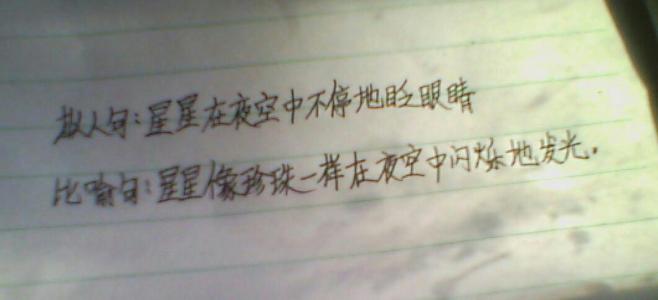 拟人句:星星在夜空中不停地眨眼睛
比喻句:星星像珍珠一样在夜空中闪烁地发光。